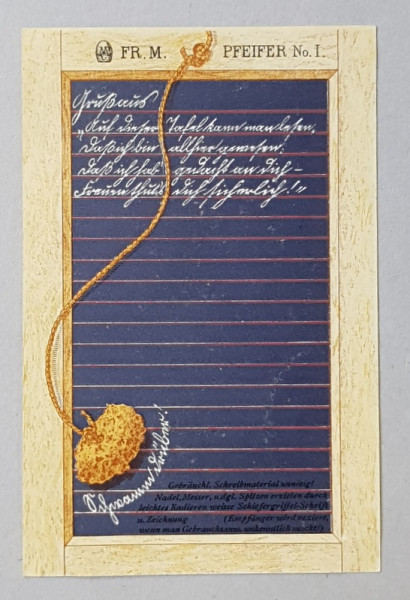 FR. M. PFEIFER No. I.
Gruß aus
"Auf dieser Tafel kann man lesen,
Daß ich bin allhier gewesen.
Daß ich hab' gedacht an Dich –
Freuen thut's Dich sicherlich!"
Schwamm drüber!
Gebräuchl. Schreibmaterial unnötig!
Nadel, Messer, u.dgl. Spitzen erzielen durch
leichtes Radieren weisse Schiefergriffel-Schrift
u. Zeichnung (Empfänger wird vexiert,
wenn man Gebrauchsanw. unkenntlich macht!)